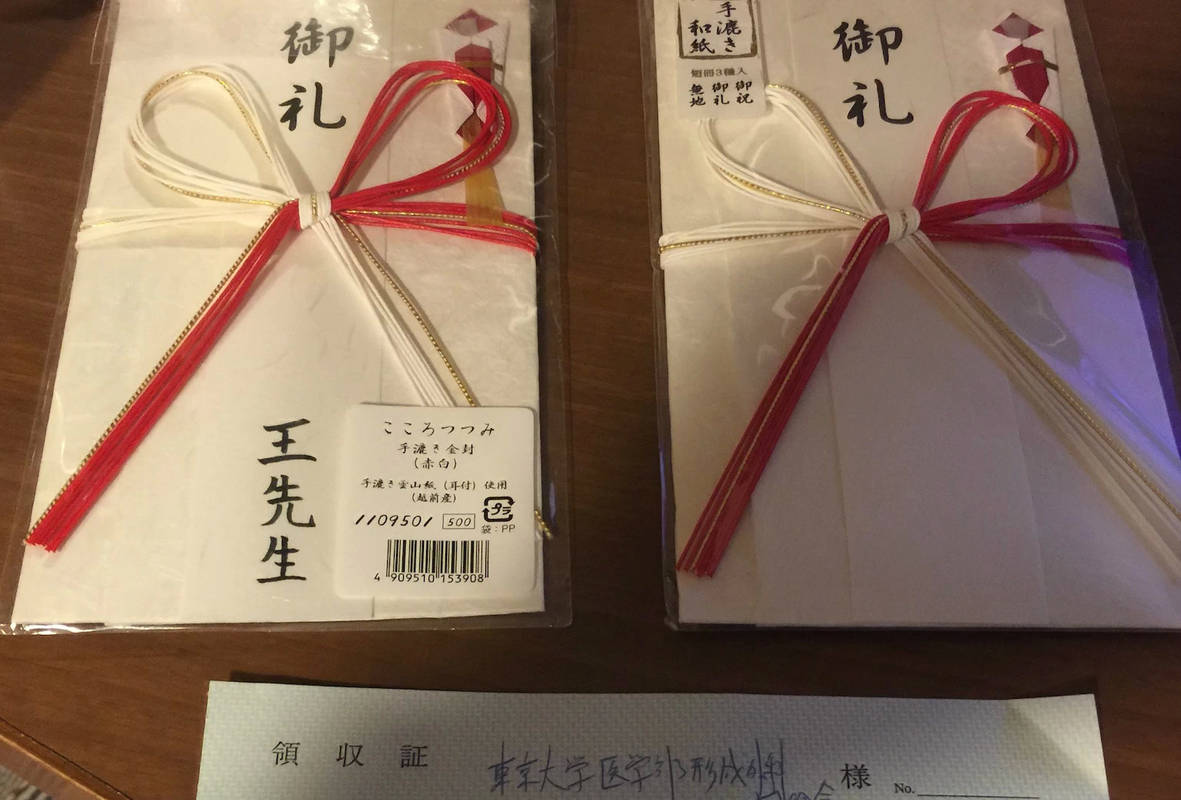 御礼
王先生
こころつつみ
手漉き金封
(赤白)
手漉き雲山紙(耳付)使用
(越前産)
1109501 500
プラ
袋:PP
4 909510 153908
手漉き
和紙
短冊3種入
御祝
御礼
無地
御礼
領収証 東京大学医学部形成 様 No.